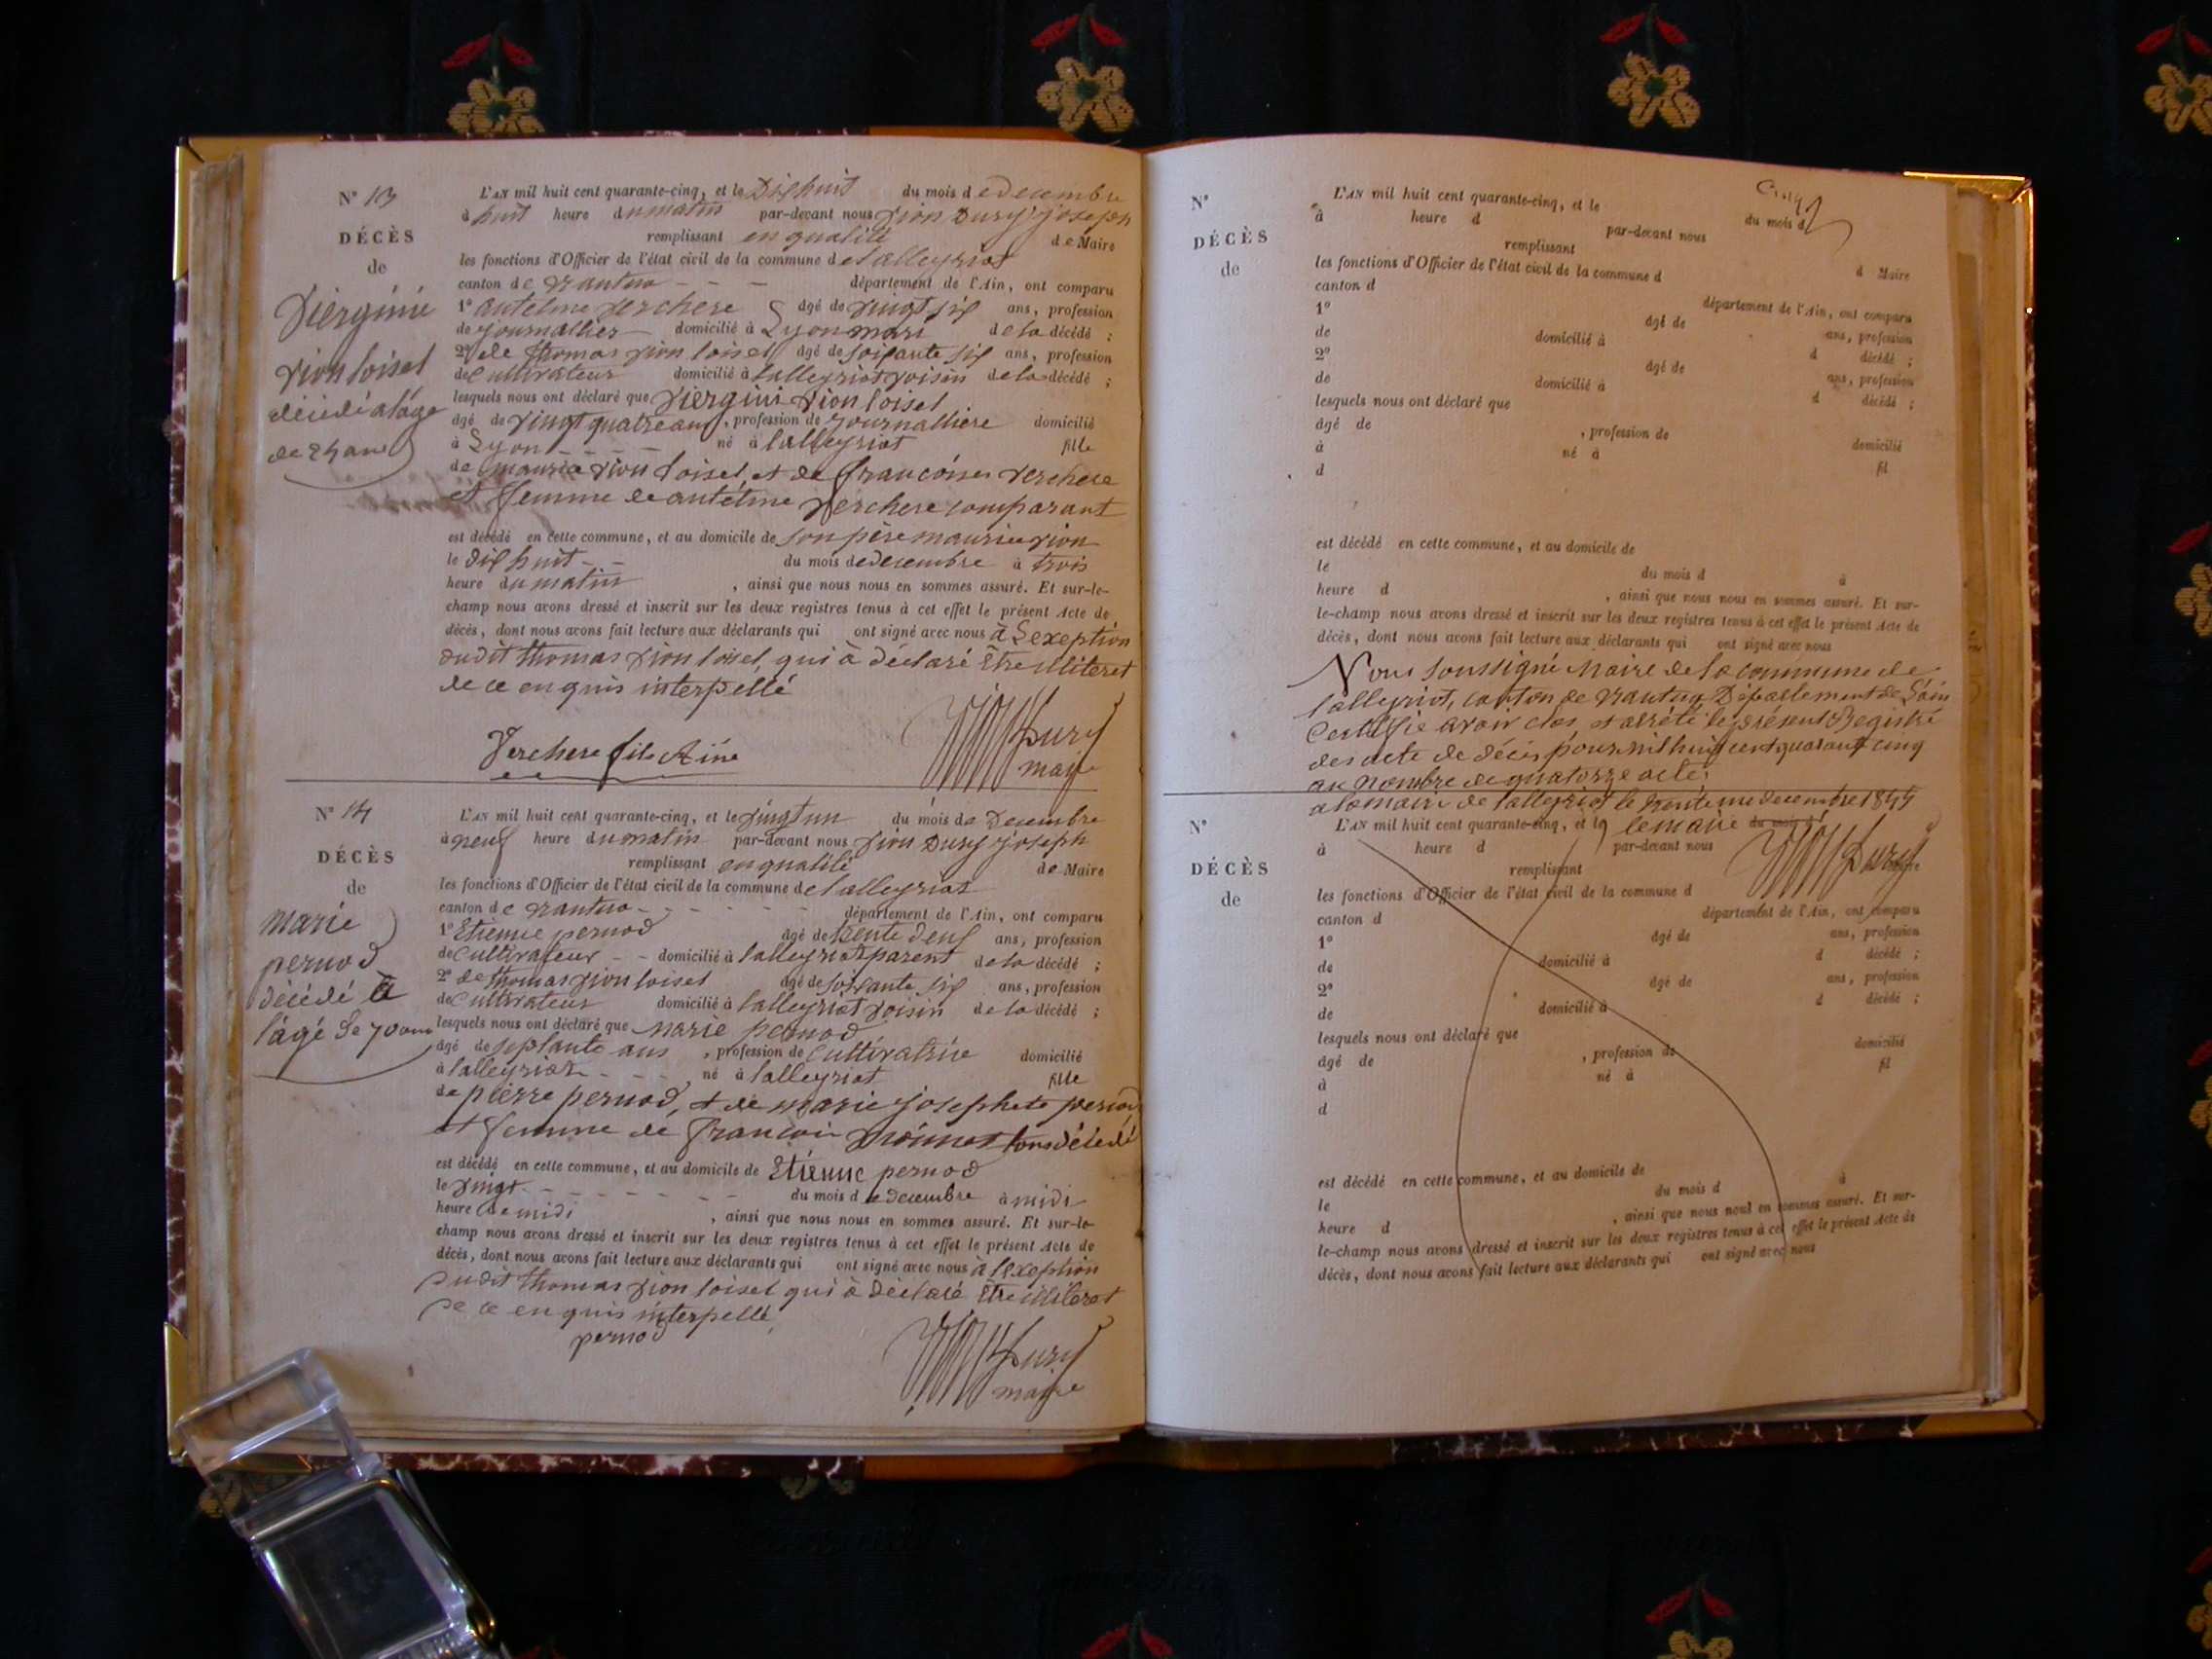 N° 13
DÉCÈS
de
Viergínie
Vion loisel
décédé a láge
de 24 ans
L'AN mil huit cent quarante-cinq, et le Dixhuit du mois de decembre
à huit heure du matin par-devant nous Vion Dury joseph
remplissant en qualité de Maire
les fonctions d'Officier de l'état civil de la commune de Lalleyriat
canton de Nantua département de l'Ain, ont comparu
1° antelme Verchere âgé de vingt six ans, profession
de journallier domicilié à Lyon mari de la décédé ;
2° de thomas Vion loisel âgé de soixante six ans, profession
de Cultivateur domicilié à lalleyriat voisin de la décédé ;
lesquels nous ont déclaré que Viergini Vion loisel
âgé de vingt quatre ans, profession de journalliere domicilié
à Lyon né à lalleyriat fille
de maurice Vion loisel, et de francóise Verchere
et femme de antélme Verchere comparant
est décédé en cette commune, et au domicile de son père maurice Vion
le dix huit du mois de decembre à trois
heure du matin , ainsi que nous nous en sommes assuré. Et sur-le-
champ nous avons dressé et inscrit sur les deux registres tenus à cet effet le présent Acte de
décès, dont nous avons fait lecture aux déclarants qui ont signé avec nous à Lexeption
dudit thomas Vion loisel, qui à déclaré Être illiteret
de ce enquis interpellé
Verchere fils Aíné
Vion Dury
maire
N° 14
DÉCÈS
de
marie
pernod
décédé à
lágé de 70 ans
L'AN mil huit cent quarante-cinq, et le vingt un du mois de Decembre
à neuf heure du matin par-devant nous Vion Dury joseph
remplissant en qualité de Maire
les fonctions d'Officier de l'état civil de la commune de lalleyriat
canton de Nantua département de l'Ain, ont comparu
1° Etienne pernod âgé de trente deux ans, profession
de Cultivateur domicilié à lalleyriat parent de la décédé ;
2° de thomas Vion loisel âgé de soixante six ans, profession
de Cultivateur domicilié à lalleyriat voisin de la décédé ;
lesquels nous ont déclaré que marie pernod
âgé de septante ans , profession de Cultivatrice domicilié
à lalleyriat né à lalleyriat fille
de pierre pernod, et de marie josephete pernod
et femme de francois tous décédé
est décédé en cette commune, et au domicile de Etienne pernod
le vingt du mois de decembre à midi
heure de midi , ainsi que nous nous en sommes assuré. Et sur-le-
champ nous avons dressé et inscrit sur les deux registres tenus à cet effet le présent Acte de
décès, dont nous avons fait lecture aux déclarants qui ont signé avec nous à lexeption
dudit thomas Vion loisel qui à déclaré Être illiteret
de ce enquis interpellé
pernod
Vion Dury
maire
N°
DÉCÈS
de
L'AN mil huit cent quarante-cinq, et le du mois d
à heure d par-devant nous
remplissant d Maire
les fonctions d'Officier de l'état civil de la commune d
canton d département de l'Ain, ont comparu
1° âgé de ans, profession
de domicilié à d décédé ;
2° âgé de ans, profession
de domicilié à d décédé ;
lesquels nous ont déclaré que
âgé de , profession de domicilié
à né à fil
d
est décédé en cette commune, et au domicile de
le du mois d à
heure d , ainsi que nous nous en sommes assuré. Et sur-
le-champ nous avons dressé et inscrit sur les deux registres tenus à cet effet le présent Acte de
décès, dont nous avons fait lecture aux déclarants qui ont signé avec nous
Nous soussigné Maire de la commune de
lalleyriat, canton de Nantua, Département de Láin
Certifie avoir clos et arrété le présent Registre
des acte de décès pour mil huit cent quarante cinq
au nombre de quatorze acte
a la mairie de lalleyriat le trente un decembre 1845
N°
DÉCÈS
de
L'AN mil huit cent quarante-cinq, et le le maire du mois d
à heure d par-devant nous Vion Dury
remplissant Maire
les fonctions d'Officier de l'état civil de la commune d
canton d département de l'Ain, ont comparu
1° âgé de ans, profession
de domicilié à d décédé ;
2° âgé de ans, profession
de domicilié à d décédé ;
lesquels nous ont déclaré que
âgé de , profession de domicilié
à né à fil
d
est décédé en cette commune, et au domicile de
le du mois d à
heure d , ainsi que nous nous en sommes assuré. Et sur-
le-champ nous avons dressé et inscrit sur les deux registres tenus à cet effet le présent Acte de
décès, dont nous avons fait lecture aux déclarants qui ont signé avec nous